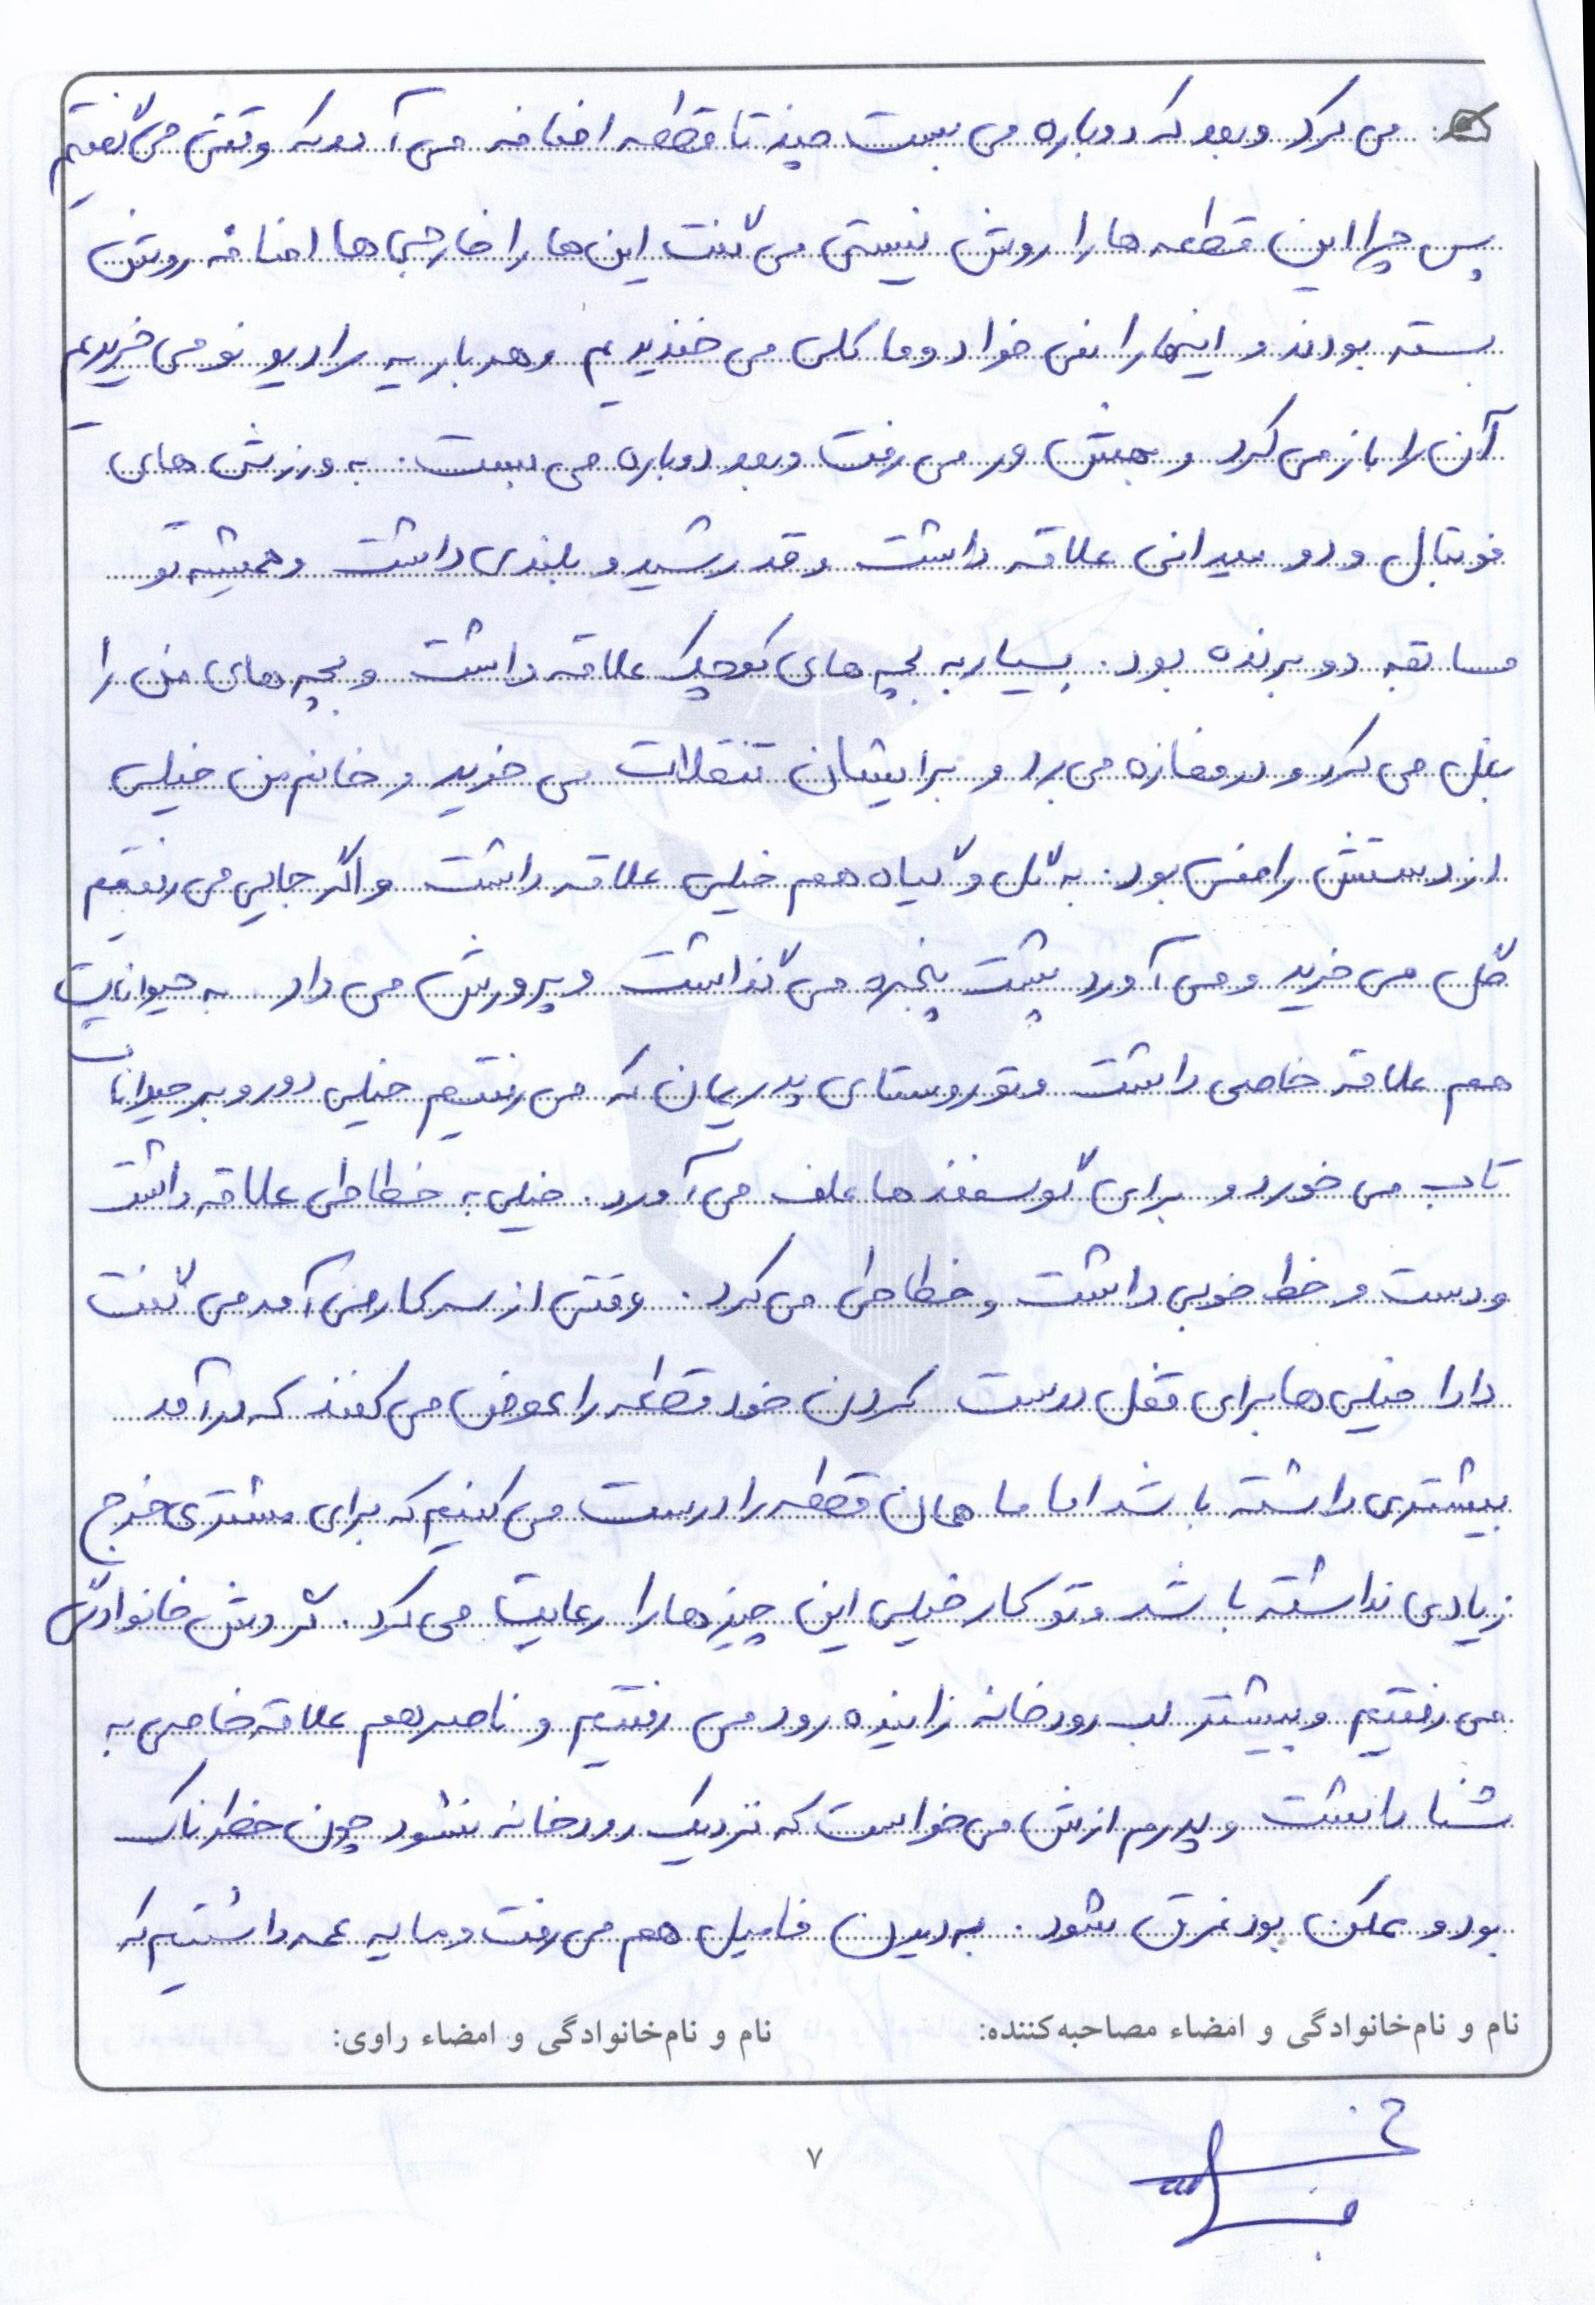 می کرد و بعد که دوباره می بست چند تا قطعه اضافه می آمد که وقتی می گفتیم
پس چرا این قطعه ها را روش نبستی می گفت این ها را خارجی ها اضافه روش
بسته بودند و اینها را نمی خواد و ما کلی می خندیدیم و هر بار یه رادیو نو می خریدیم
آن را باز می کرد و بهش ور می رفت و بعد دوباره می بست. به ورزش های
فوتبال و دو میدانی علاقه داشت و قد رشید و بلندی داشت و همیشه تو
مسابقه دو برنده بود. بسیار به بچه های کوچک علاقه داشت و بچه های من را
بغل می کرد و در مغازه می برد و برایشان تنقلات می خرید و خانم من خیلی
از دستش راضی بود. به گل و گیاه هم خیلی علاقه داشت و اگر جایی می رفتیم
گل می خرید و می آورد پشت پنجره می گذاشت و پرورش می داد به حیوانات
هم علاقه خاصی داشت و تو روستای پدریمان که می رفتیم خیلی دور و بر حیوانات
تاب می خورد و برای گوسفندها علف می آورد. خیلی به خطاطی علاقه داشت
و دست و خط خوبی داشت و خطاطی می کرد. وقتی از سر کار می آمد می گفت
دادا خیلی ها برای قفل درست کردن خود قطعه را عوض می کنند که درآمد
بیشتری داشته باشد اما ما همان قطعه را درست می کنیم که برای مشتری خرج
زیادی نداشته باشد و تو کار خیلی این چیزها را رعایت می کرد. گردش خانوادگی
می رفتیم و بیشتر لب رودخانه زاینده رود می رفتیم و ناصر هم علاقه خاصی به
شنا داشت و پدرم ازش می خواست که نزدیک رودخانه نشود چون خطرناک
بود و ممکن بود غرق شود. به دیدن فامیل هم می رفت و ما یه عمه داشتیم که
نام و نام‌خانوادگی و امضاء مصاحبه‌کننده: نام و نام‌خانوادگی و امضاء راوی:
۷